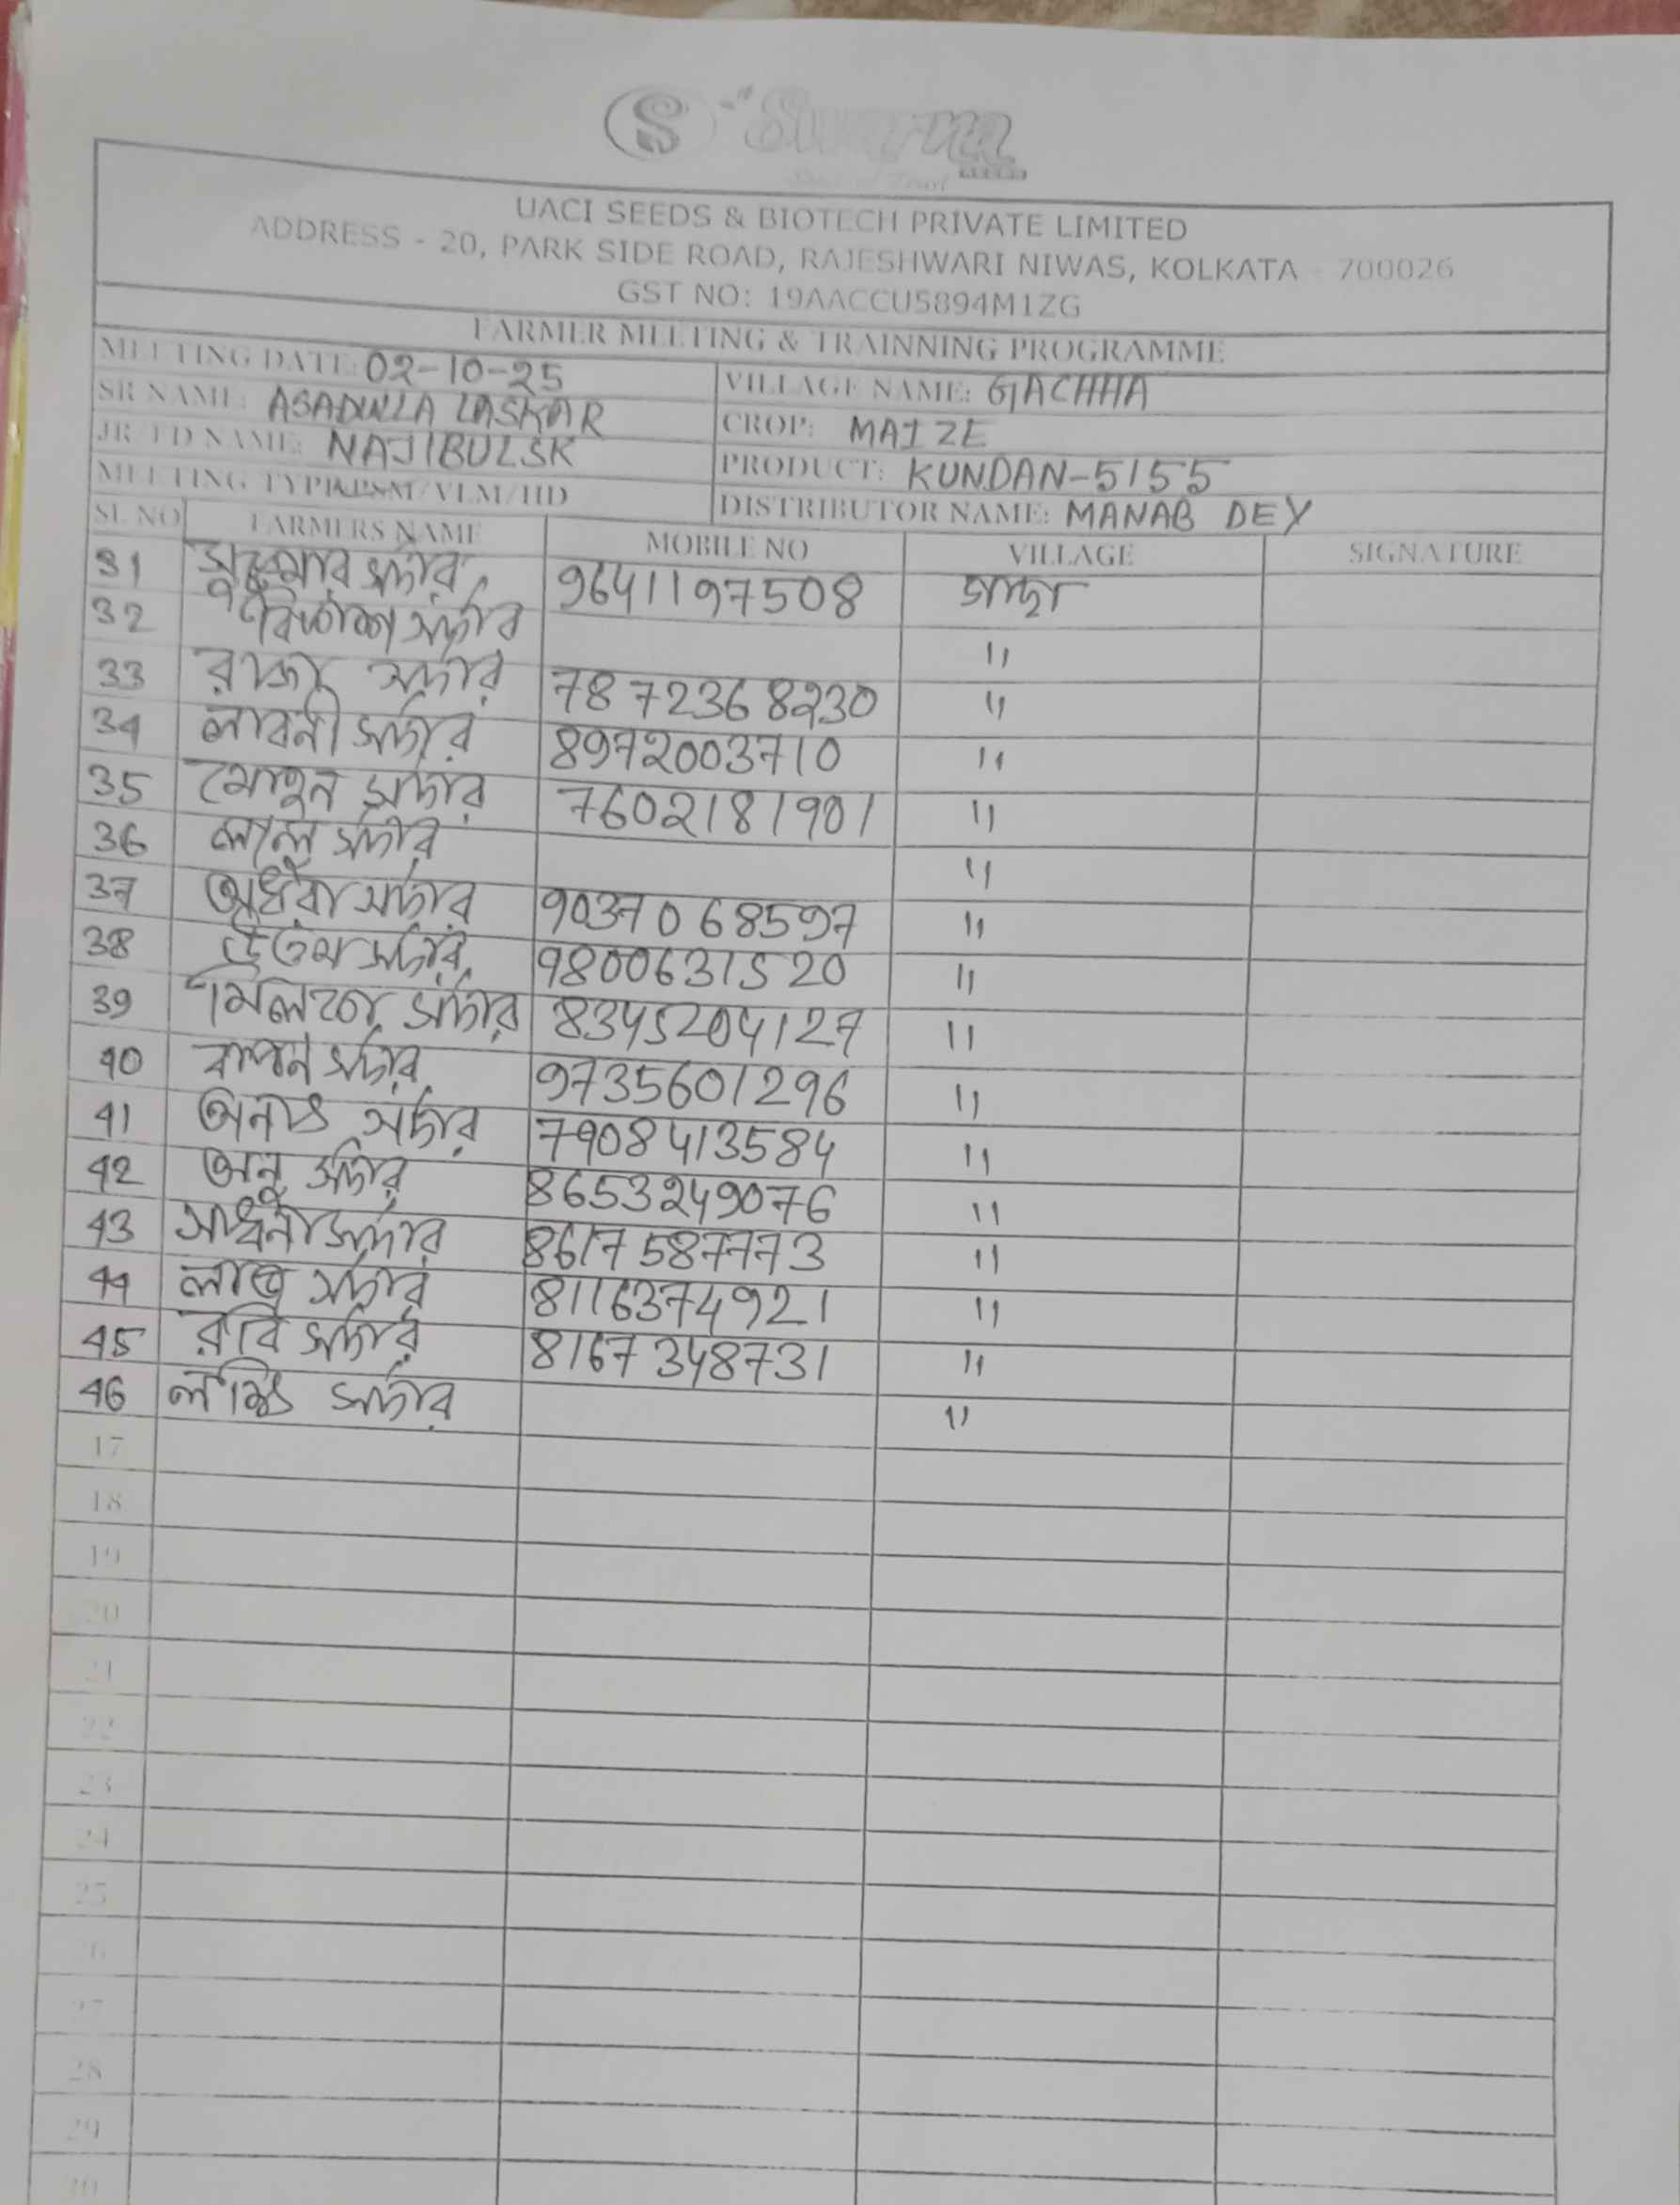 S Swarna
UACI SEEDS & BIOTECH PRIVATE LIMITED
ADDRESS - 20, PARK SIDE ROAD, RAJESHWARI NIWAS, KOLKATA - 700026
GST NO: 19AACCU5894M1ZG
FARMER MEETING & TRAINNING PROGRAMME
MEETING DATE: 02-10-25 VILLAGE NAME: GACHHA
SR NAME: ASADULLA LASKAR CROP: MAIZE
JR TD NAME: NAJIBULSK PRODUCT: KUNDAN-5155
MEETING TYPE DISTRIBUTOR NAME: MANAB DEY
SL NO FARMERS NAME MOBILE NO VILLAGE SIGNATURE
31 সুকুমার সর্দার 9641197508 গাছা
32 বিকাশ সর্দার 11
33 রাজু সর্দার 7872368230 11
34 লাবনী সর্দার 8972003710 11
35 মোহন সর্দার 7602181901 11
36 লালু সর্দার 11
37 সর্দার 9037068597 11
38 উত্তম সর্দার 9800631520 11
39 সর্দার 8345204127 11
40 সর্দার 9735601296 11
41 সর্দার 7908413584 11
42 অনু সর্দার 8653249076 11
43 সাধনী সর্দার 8617587773 11
44 সর্দার 8116374921 11
45 রবি সর্দার 8167348731 11
46 সর্দার 11
17
18
19
20
21
22
23
24
25
26
27
28
29
30